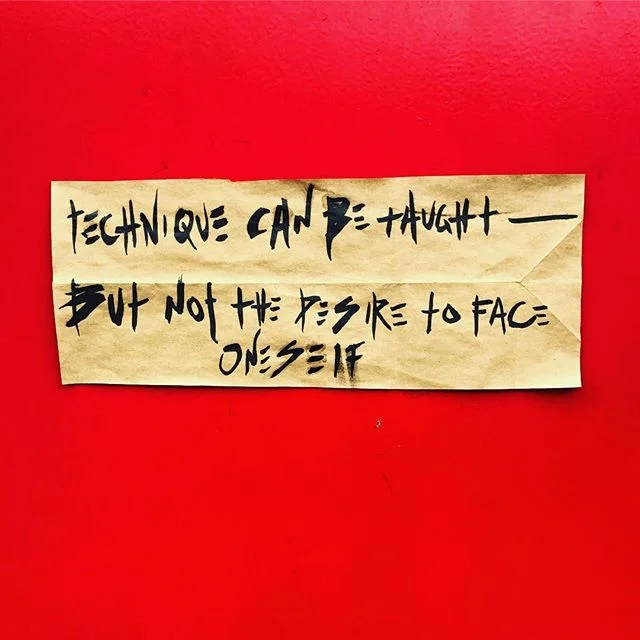 TECHNIQUE CAN BE TAUGHT —
BUT NOT THE DESIRE TO FACE
ONESELF